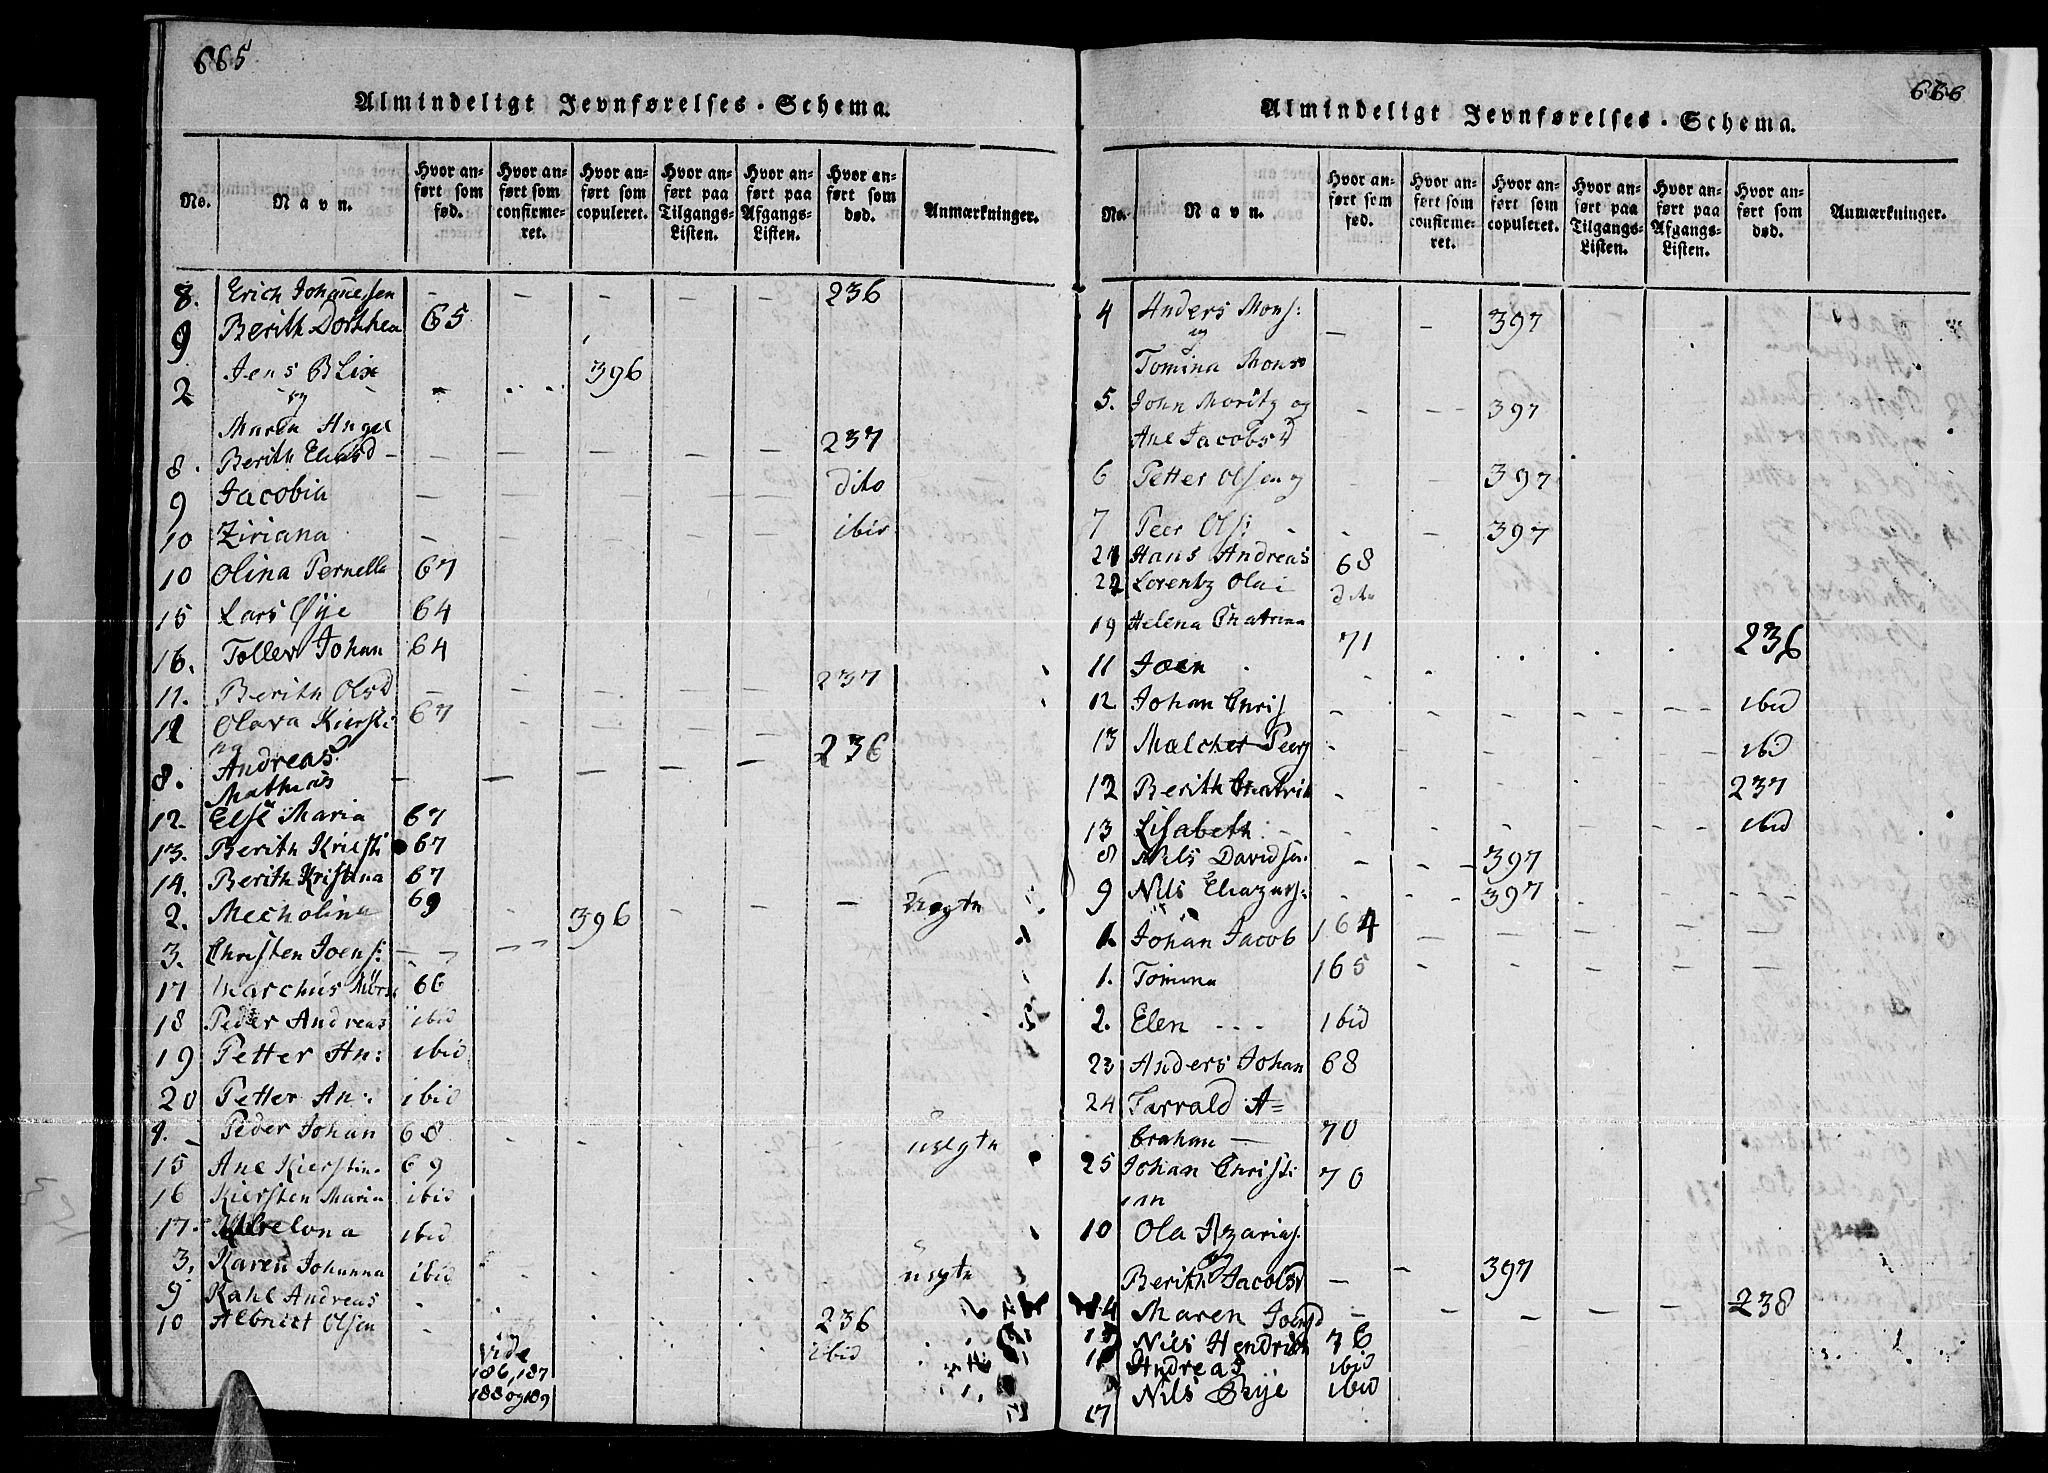 665
Almindeligt Jevnførelses-Schema.
No. Navn. Hvor anført som fød. Hvor anført som confirmeret. Hvor anført som copuleret. Hvor anført paa Tilgangs-Listen. Hvor anført paa Afgangs-Listen. Hvor anført som død. Anmærkninger.
8. Erich Johannesen - - - - - 236
9 Berith Dorthea 65
2 Jens Blix - - 396
og
Maren Angel
8. Berith Eliasd - - - - - - 237
9 Jacobia - - - - - dito
10 Ziriana - - - - - ibid
10 Olina Pernella 67
15 Lars Øye 64
16. Toller Johan 64
11. Berith Olsd - - - - - 237
12 Olava Kiersti 67
8. Andreas - - - - - 236
Mathias
12. Else Maria 67
13. Berith Kristi 67
14. Berith Kristina 67
2. Mecholina 69 - - -
3. Christen Joens: - - 396
17 Marchus 66
18 Peder Andreas ibid
19 Petter An: ibid
20 Petter An: ibid
Peder Johan 68 - - - - - usegtn
15 Ane Kierstin. 69
16 Kiersten Maria ibid
17. ibid
3. Karen Johanna ibid usegtn
9 Kahl Andreas - 236
10 Albrict Olsen - ibid
Vide
186, 187
188 og 189
666
Almindeligt Jevnførelses-Schema.
No. Navn. Hvor anført som fød. Hvor anført som confirmeret. Hvor anført som copuleret. Hvor anført paa Tilgangs-Listen. Hvor anført paa Afgangs-Listen. Hvor anført som død. Anmærkninger.
4 Anders Mons: - - 397
og
Tomina Monsd
5. John Moritz og - - 397
Ane Jacobsd
6 Petter Olsen og - - 397
7 Peer Ols: - - 397
21 Hans Andreas 68
22 Lorentz Olai dito
19 Helena Chatrina 71
11 Joen - 236
12 Johan Chris - - - - - ibid
13 Malcher Peers - - - ibid
12 Berith Chatrin - - 237
13 Lisabeth - - - - - ibid
8 Nils Davidsen. - - - 397
9 Nils Eliazars: - - 397
1. Johan Jacob 164 - - - - -
1. Tomina 165 - - - - -
2. Elen - - - ibid
23 Anders Johan 68
24 Tarrald A=
brahan - 70
25 Johan Christi 70
an
10 Ola Azarias.
og
Berith Jacobsd - - 397
Maren Joensd - - - - - 238
Nils Hendrich 76
Andreas ibid
17 Nils Øye ibid